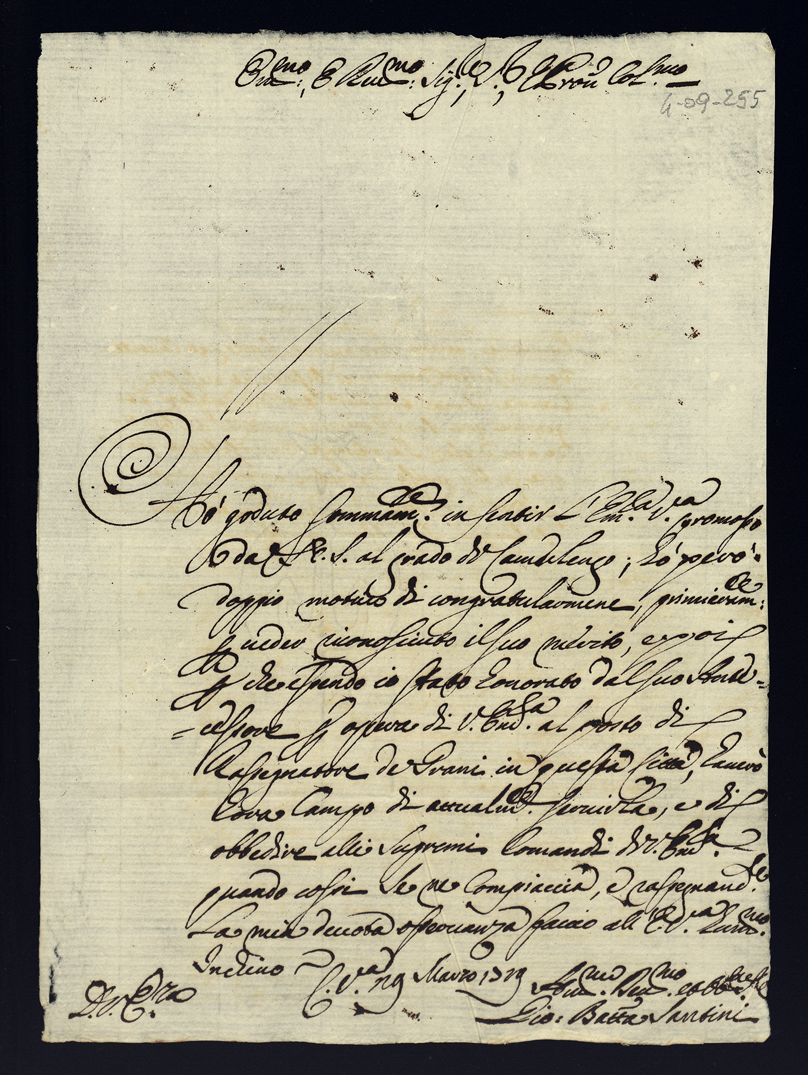 Em:mo, E Rev:mo Sig:re, S:r, e Pron Col:mo
4-09-255
Hò goduto sommam:te in sentir L'Em:a V:ra promosso
da S. S. al grado di Camerlengo; hò però
doppio motivo di congratularmene, primieram:te
p veder riconosciuto il suo merito, e poi
p che essendo io stato honorato dal suo Ante=
=cessore p opera di V. Em:a al posto di
Rassegnatore de Grani in questa Città, haverò
hora Campo di attualm:te servirla, e di
obbedire alli supremi Comandi di V. Em:a
quando così se ne compiaccia, e rassegnand:le
La mia devota osservanza faccio all' E. V:ra hum:mo
Inchino C. V:a 29 Marzo 1719
D. V. Em:za
Hum:mo Dev:mo et Obb:mo
Gio: Batta Santini